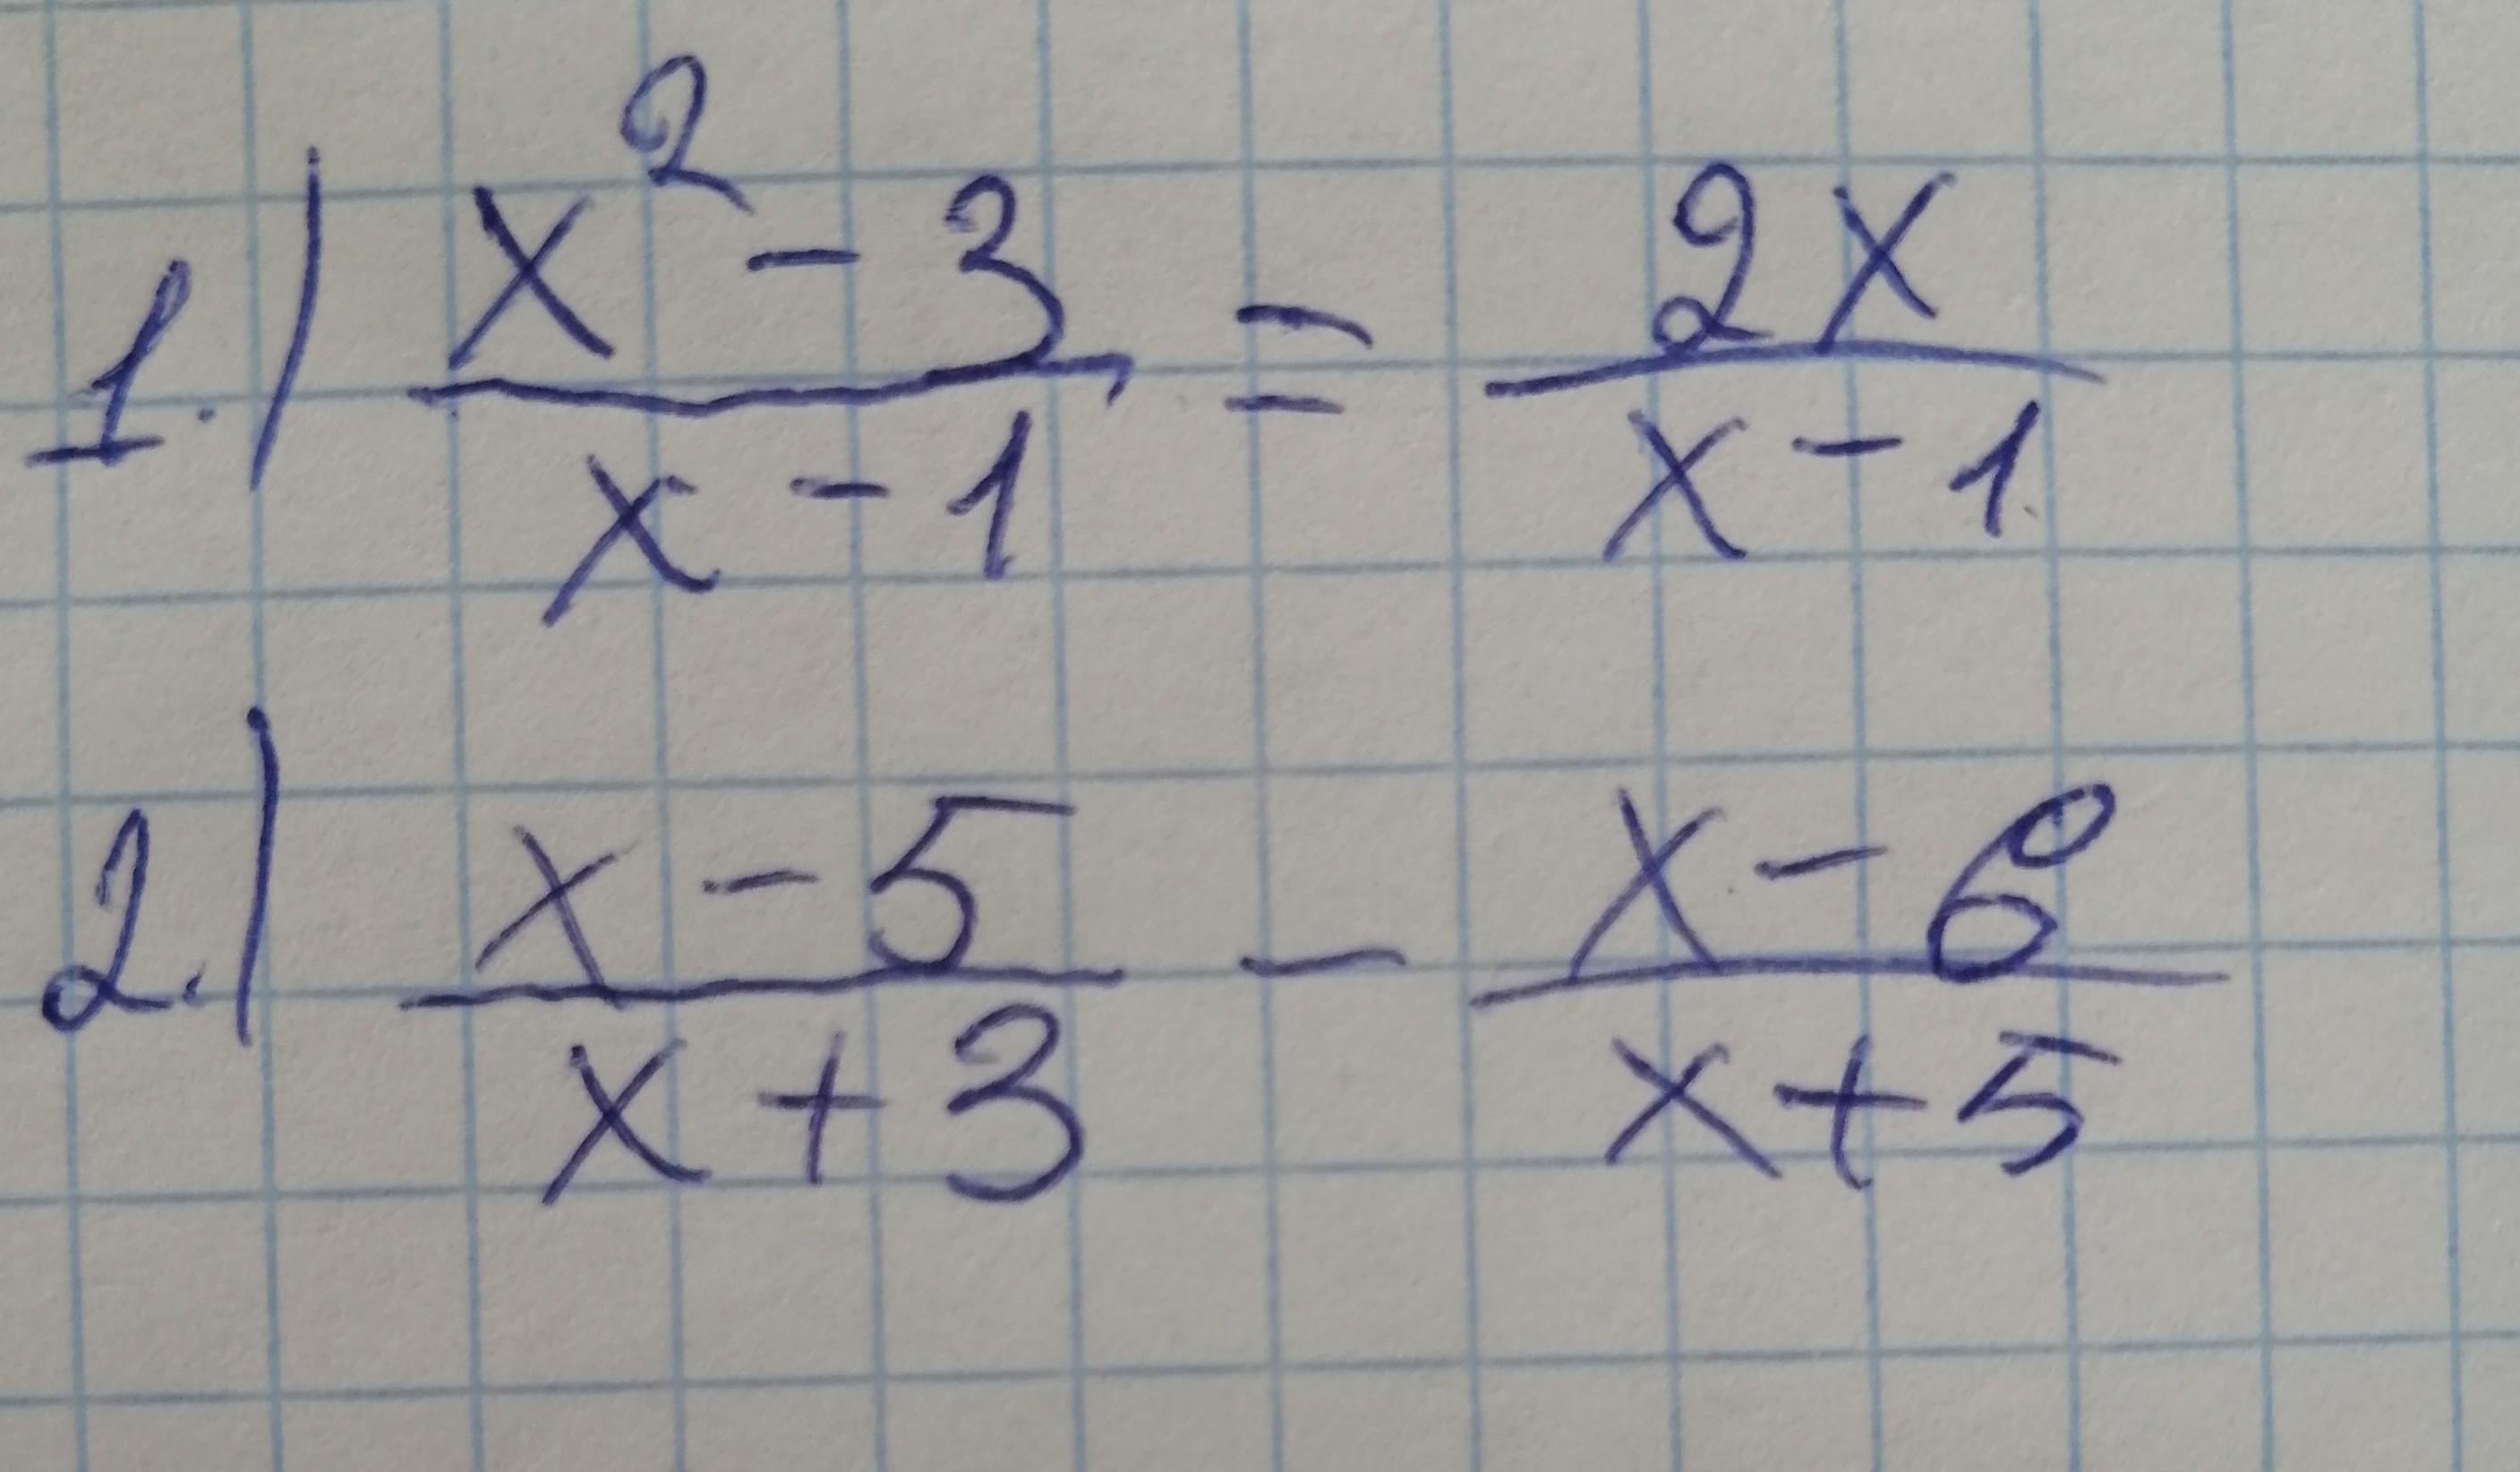 1.) (x² - 3)/(x - 1) = 2x/(x - 1)
2.) (x - 5)/(x + 3) - (x - 6)/(x + 5)